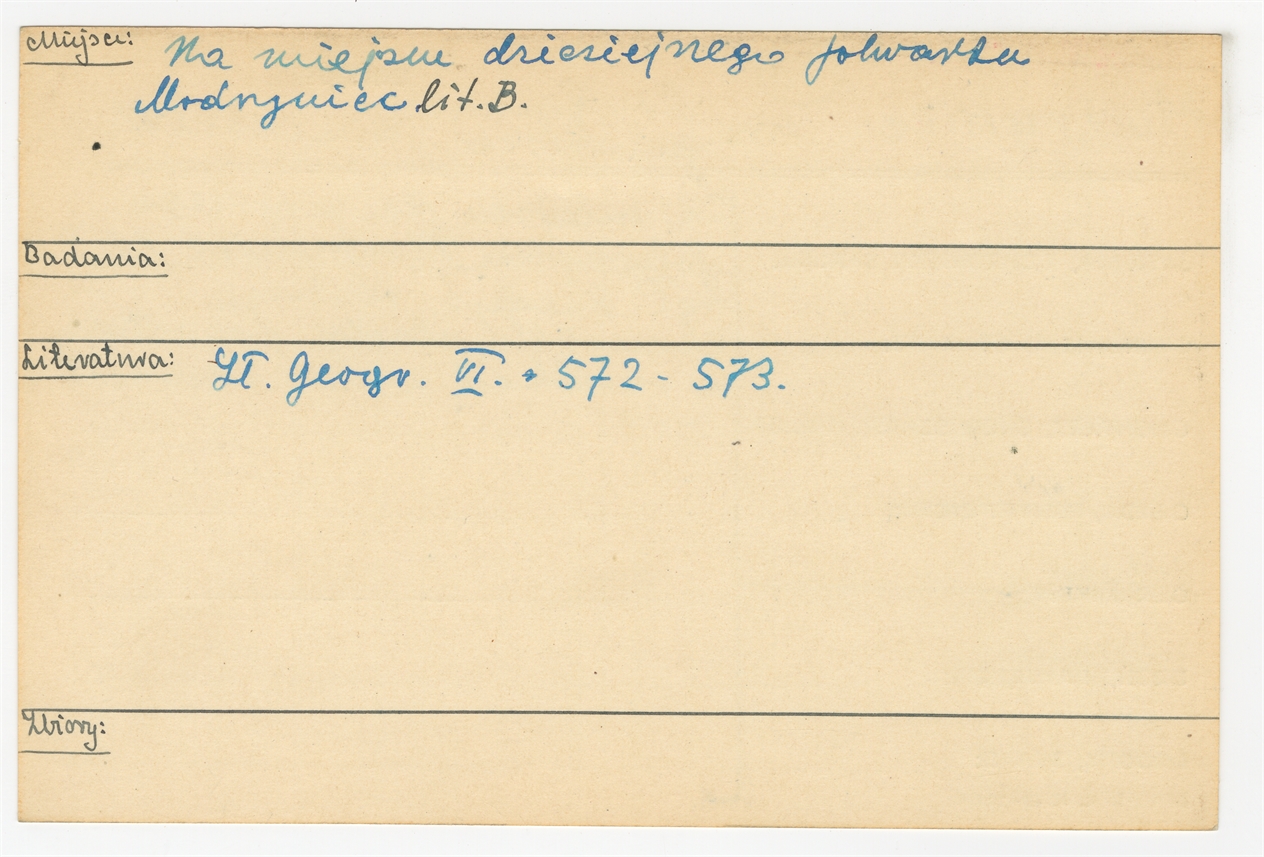 Miejsce: Na miejscu dzisiejszego folwarku
Modryniec lit. B.
Badania:
Literatura: Sł. Geogr. VI. 572 - 573.
Zbiory: